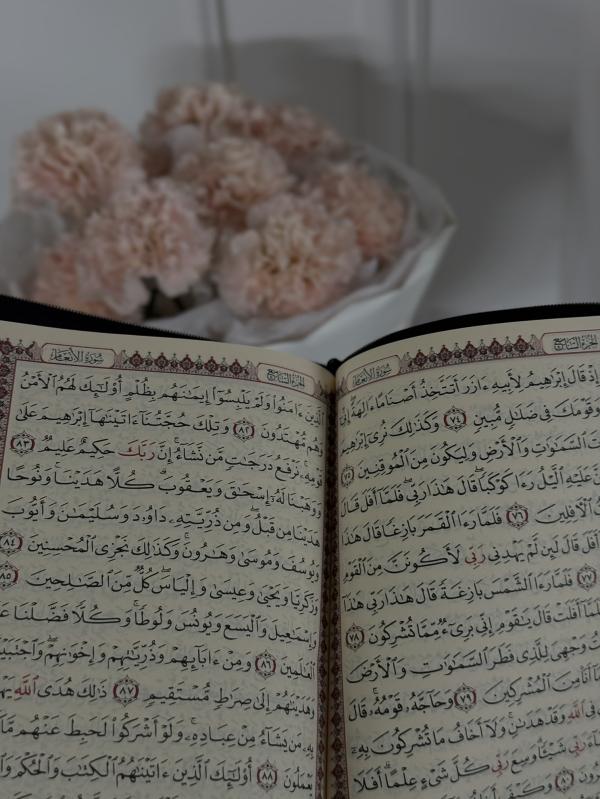 الجزء السابع
سورة الأنعام
إِذْ قَالَ إِبْرَٰهِيمُ لِأَبِيهِ ءَازَرَ أَتَتَّخِذُ أَصْنَامًا ءَالِهَةً إِنِّىٓ
وَقَوْمَكَ فِى ضَلَٰلٍ مُّبِينٍ ٧٤ وَكَذَٰلِكَ نُرِىٓ إِبْرَٰهِيمَ
ٱلسَّمَٰوَٰتِ وَٱلْأَرْضِ وَلِيَكُونَ مِنَ ٱلْمُوقِنِينَ ٧٥
عَلَيْهِ ٱلَّيْلُ رَءَا كَوْكَبًا قَالَ هَٰذَا رَبِّى فَلَمَّآ أَفَلَ قَالَ
ٱلْءَافِلِينَ ٧٦ فَلَمَّا رَءَا ٱلْقَمَرَ بَازِغًا قَالَ هَٰذَا
أَفَلَ قَالَ لَئِن لَّمْ يَهْدِنِى رَبِّى لَأَكُونَنَّ مِنَ ٱلْقَوْمِ
٧٧ فَلَمَّا رَءَا ٱلشَّمْسَ بَازِغَةً قَالَ هَٰذَا رَبِّى هَٰذَآ
أَفَلَتْ قَالَ يَٰقَوْمِ إِنِّى بَرِىٓءٌ مِّمَّا تُشْرِكُونَ ٧٨
وَجْهِىَ لِلَّذِى فَطَرَ ٱلسَّمَٰوَٰتِ وَٱلْأَرْضَ
أَنَا۠ مِنَ ٱلْمُشْرِكِينَ ٧٩ وَحَآجَّهُۥ قَوْمُهُۥ قَالَ
فِى ٱللَّهِ وَقَدْ هَدَىٰنِ وَلَآ أَخَافُ مَا تُشْرِكُونَ بِهِۦٓ
رَبِّى شَيْـًٔا وَسِعَ رَبِّى كُلَّ شَىْءٍ عِلْمًا أَفَلَا
٨٠ وَكَيْفَ أَخَافُ
سورة الأنعام
الجزء السابع
ٱلَّذِينَ ءَامَنُوا۟ وَلَمْ يَلْبِسُوٓا۟ إِيمَٰنَهُم بِظُلْمٍ أُو۟لَٰٓئِكَ لَهُمُ ٱلْأَمْنُ
وَهُم مُّهْتَدُونَ ٨٢ وَتِلْكَ حُجَّتُنَآ ءَاتَيْنَٰهَآ إِبْرَٰهِيمَ عَلَىٰ
قَوْمِهِۦ نَرْفَعُ دَرَجَٰتٍ مَّن نَّشَآءُ إِنَّ رَبَّكَ حَكِيمٌ عَلِيمٌ ٨٣
وَوَهَبْنَا لَهُۥٓ إِسْحَٰقَ وَيَعْقُوبَ كُلًّا هَدَيْنَا وَنُوحًا
هَدَيْنَا مِن قَبْلُ وَمِن ذُرِّيَّتِهِۦ دَاوُۥدَ وَسُلَيْمَٰنَ وَأَيُّوبَ
وَيُوسُفَ وَمُوسَىٰ وَهَٰرُونَ وَكَذَٰلِكَ نَجْزِى ٱلْمُحْسِنِينَ ٨٤
وَزَكَرِيَّا وَيَحْيَىٰ وَعِيسَىٰ وَإِلْيَاسَ كُلٌّ مِّنَ ٱلصَّٰلِحِينَ ٨٥
وَإِسْمَٰعِيلَ وَٱلْيَسَعَ وَيُونُسَ وَلُوطًا وَكُلًّا فَضَّلْنَا
ٱلْعَٰلَمِينَ ٨٦ وَمِنْ ءَابَآئِهِمْ وَذُرِّيَّٰتِهِمْ وَإِخْوَٰنِهِمْ
وَهَدَيْنَٰهُمْ إِلَىٰ صِرَٰطٍ مُّسْتَقِيمٍ ٨٧ ذَٰلِكَ هُدَى ٱللَّهِ
بِهِۦ مَن يَشَآءُ مِنْ عِبَادِهِۦ وَلَوْ أَشْرَكُوا۟ لَحَبِطَ عَنْهُم مَّا
يَعْمَلُونَ ٨٨ أُو۟لَٰٓئِكَ ٱلَّذِينَ ءَاتَيْنَٰهُمُ ٱلْكِتَٰبَ وَٱلْحُكْمَ